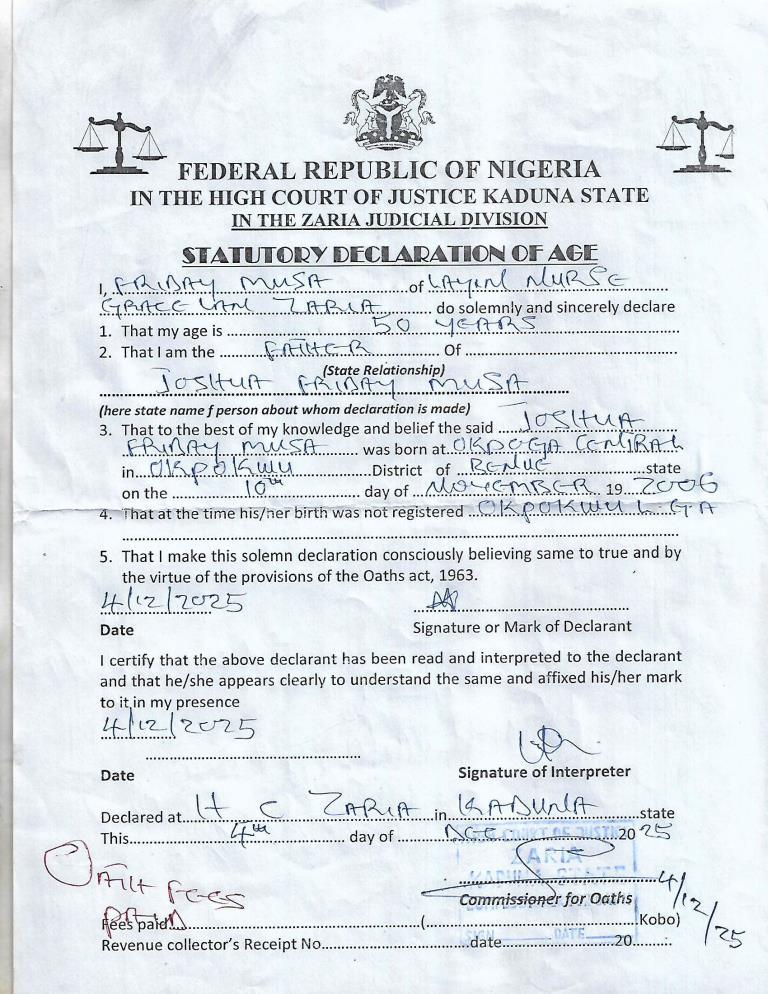 FEDERAL REPUBLIC OF NIGERIA
IN THE HIGH COURT OF JUSTICE KADUNA STATE
IN THE ZARIA JUDICIAL DIVISION
STATUTORY DECLARATION OF AGE
I, FRIDAY MUSA of LAYIN NURSE
GRACE LAN ZARIA do solemnly and sincerely declare
1. That my age is 50 YEARS
2. That I am the FATHER Of
(State Relationship)
JOSHUA FRIDAY MUSA
(here state name f person about whom declaration is made)
3. That to the best of my knowledge and belief the said JOSHUA
FRIDAY MUSA was born at OKPOGA CENTRAL
in OKPOKWU District of BENUE state
on the 10th day of NOVEMBER 19 2006
4. That at the time his/her birth was not registered OKPOKWU L G A
5. That I make this solemn declaration consciously believing same to true and by
the virtue of the provisions of the Oaths act, 1963.
4/12/2025
Date Signature or Mark of Declarant
I certify that the above declarant has been read and interpreted to the declarant
and that he/she appears clearly to understand the same and affixed his/her mark
to it in my presence
4/12/2025
Date Signature of Interpreter
Declared at H C ZARIA in KADUNA state
This 4th day of DEC 2025
COURT OF JUSTICE
ZARIA
KADUNA STATE
4/12/25
Commissioner for Oaths
SIGN DATE
OATH FEES
PAID
Fees paid ( Kobo)
Revenue collector's Receipt No. date 20